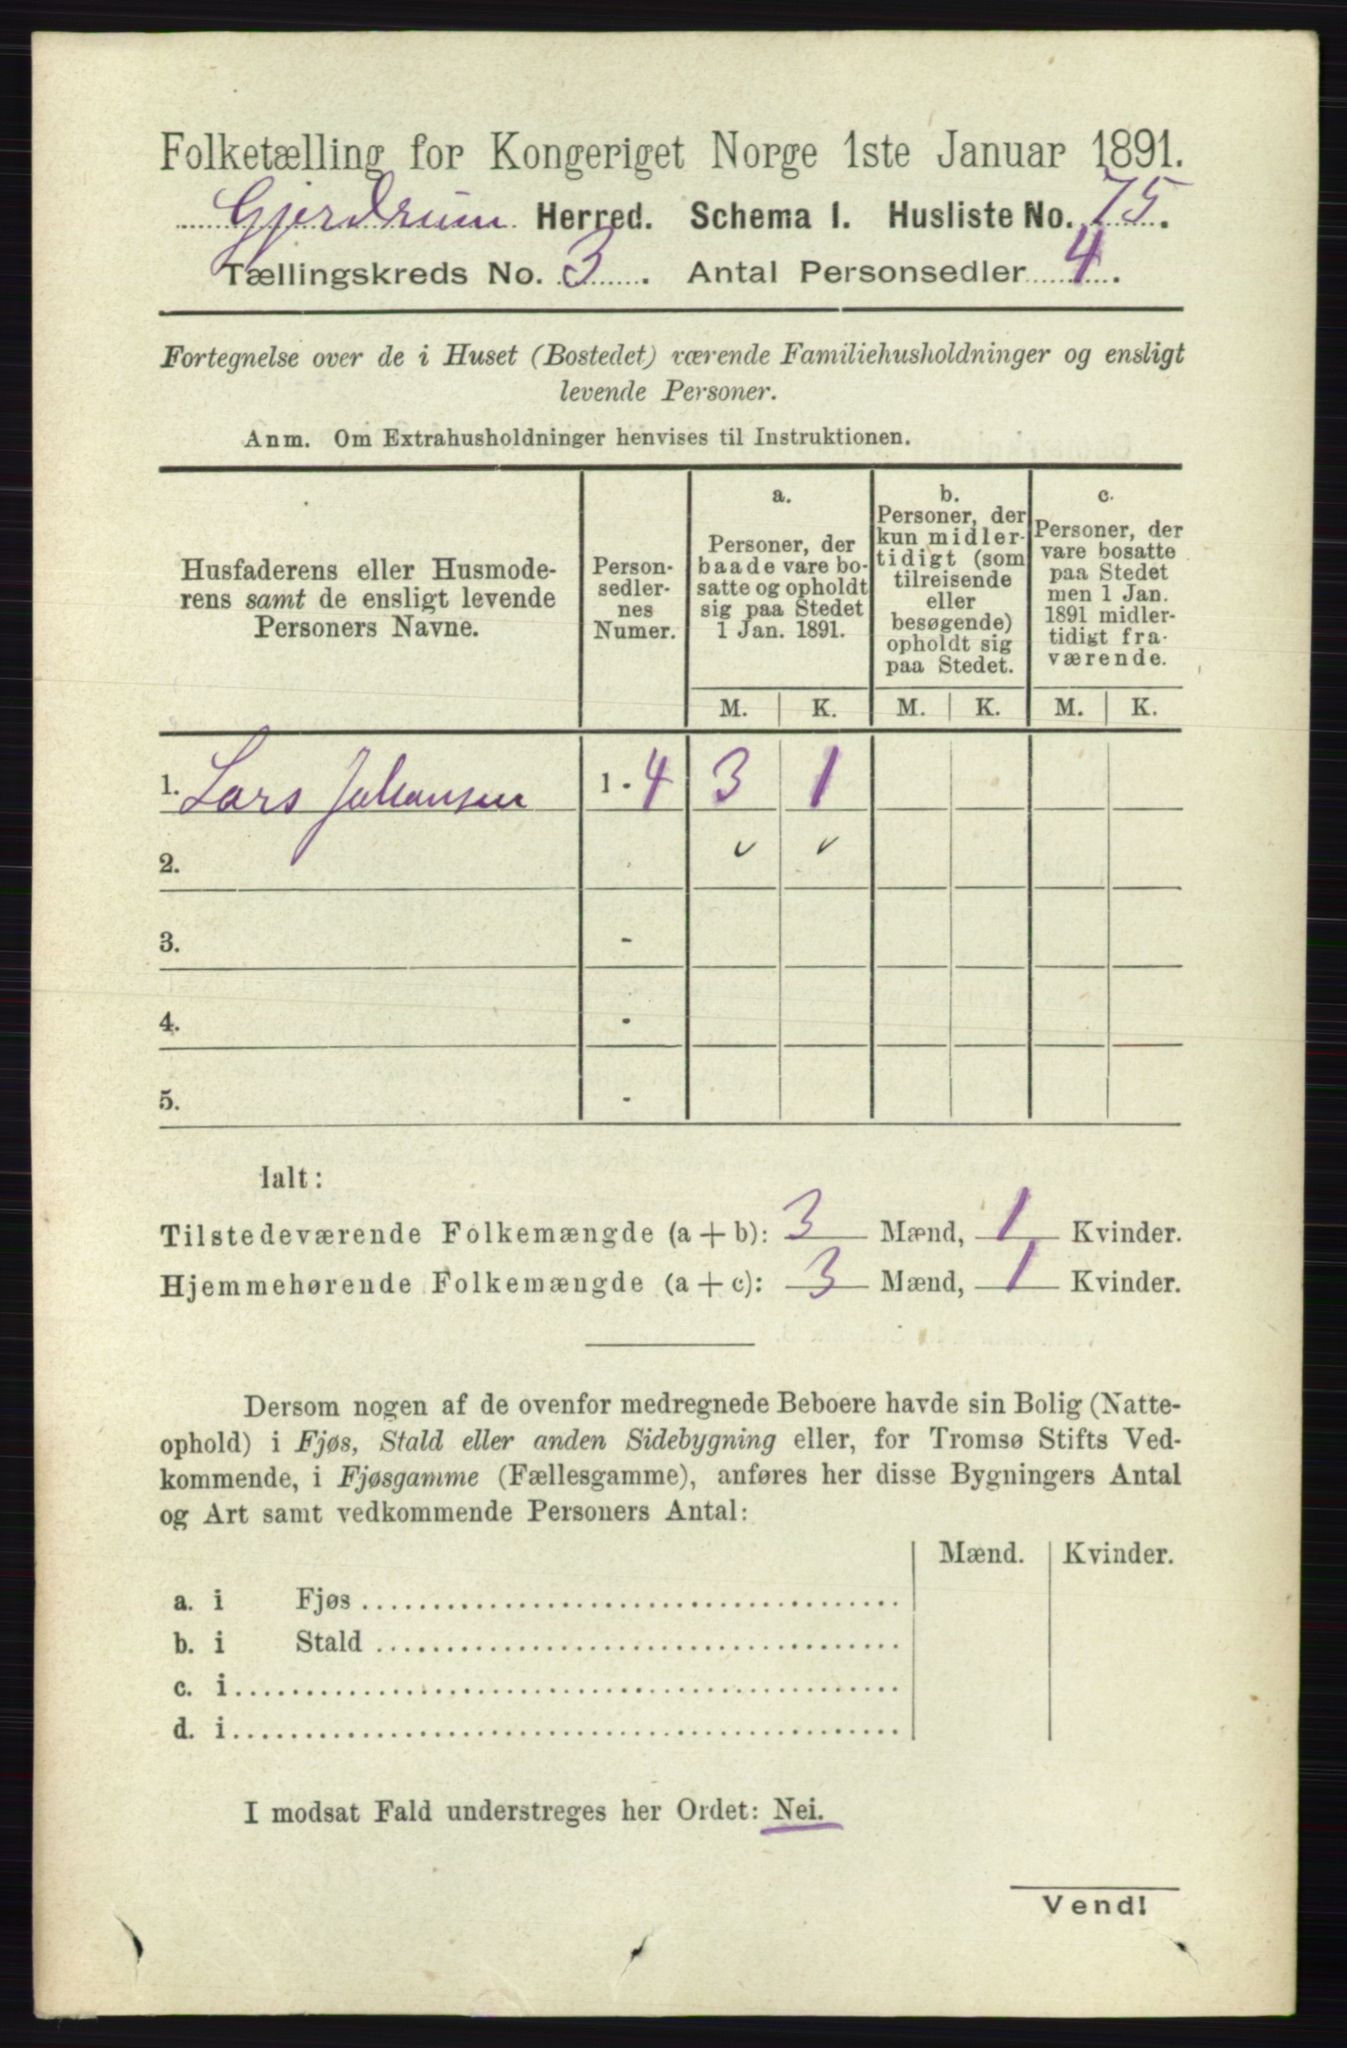 Folketælling for Kongeriget Norge 1ste Januar 1891.
Gjerdrum Herred. Schema I. Husliste No. 75.
Tællingskreds No. 3. Antal Personsedler 4.
Fortegnelse over de i Huset (Bostedet) værende Familiehusholdninger og ensligt
levende Personer.
Anm. Om Extrahusholdninger henvises til Instruktionen.
Husfaderens eller Husmode-
rens samt de ensligt levende
Personers Navne.
Person-
sedler-
nes
Numer.
a.
Personer, der
baade vare bo-
satte og opholdt
sig paa Stedet
1 Jan. 1891.
b.
Personer, der
kun midler-
tidigt (som
tilreisende
eller
besøgende)
opholdt sig
paa Stedet.
c.
Personer, der
vare bosatte
paa Stedet
men 1 Jan.
1891 midler-
tidigt fra-
værende.
M. K. M. K. M. K.
1. Lars Johansen 1 - 4 3 1
2.
3. -
4. -
5. -
Ialt:
Tilstedeværende Folkemængde (a + b): 3 Mænd, 1 Kvinder.
Hjemmehørende Folkemængde (a + c): 3 Mænd, 1 Kvinder.
Dersom nogen af de ovenfor medregnede Beboere havde sin Bolig (Natte-
ophold) i Fjøs, Stald eller anden Sidebygning eller, for Tromsø Stifts Ved-
kommende, i Fjøsgamme (Fællesgamme), anføres her disse Bygningers Antal
og Art samt vedkommende Personers Antal:
Mænd. Kvinder.
a. i Fjøs
b. i Stald
c. i
d. i
I modsat Fald understreges her Ordet: Nei.
Vend!